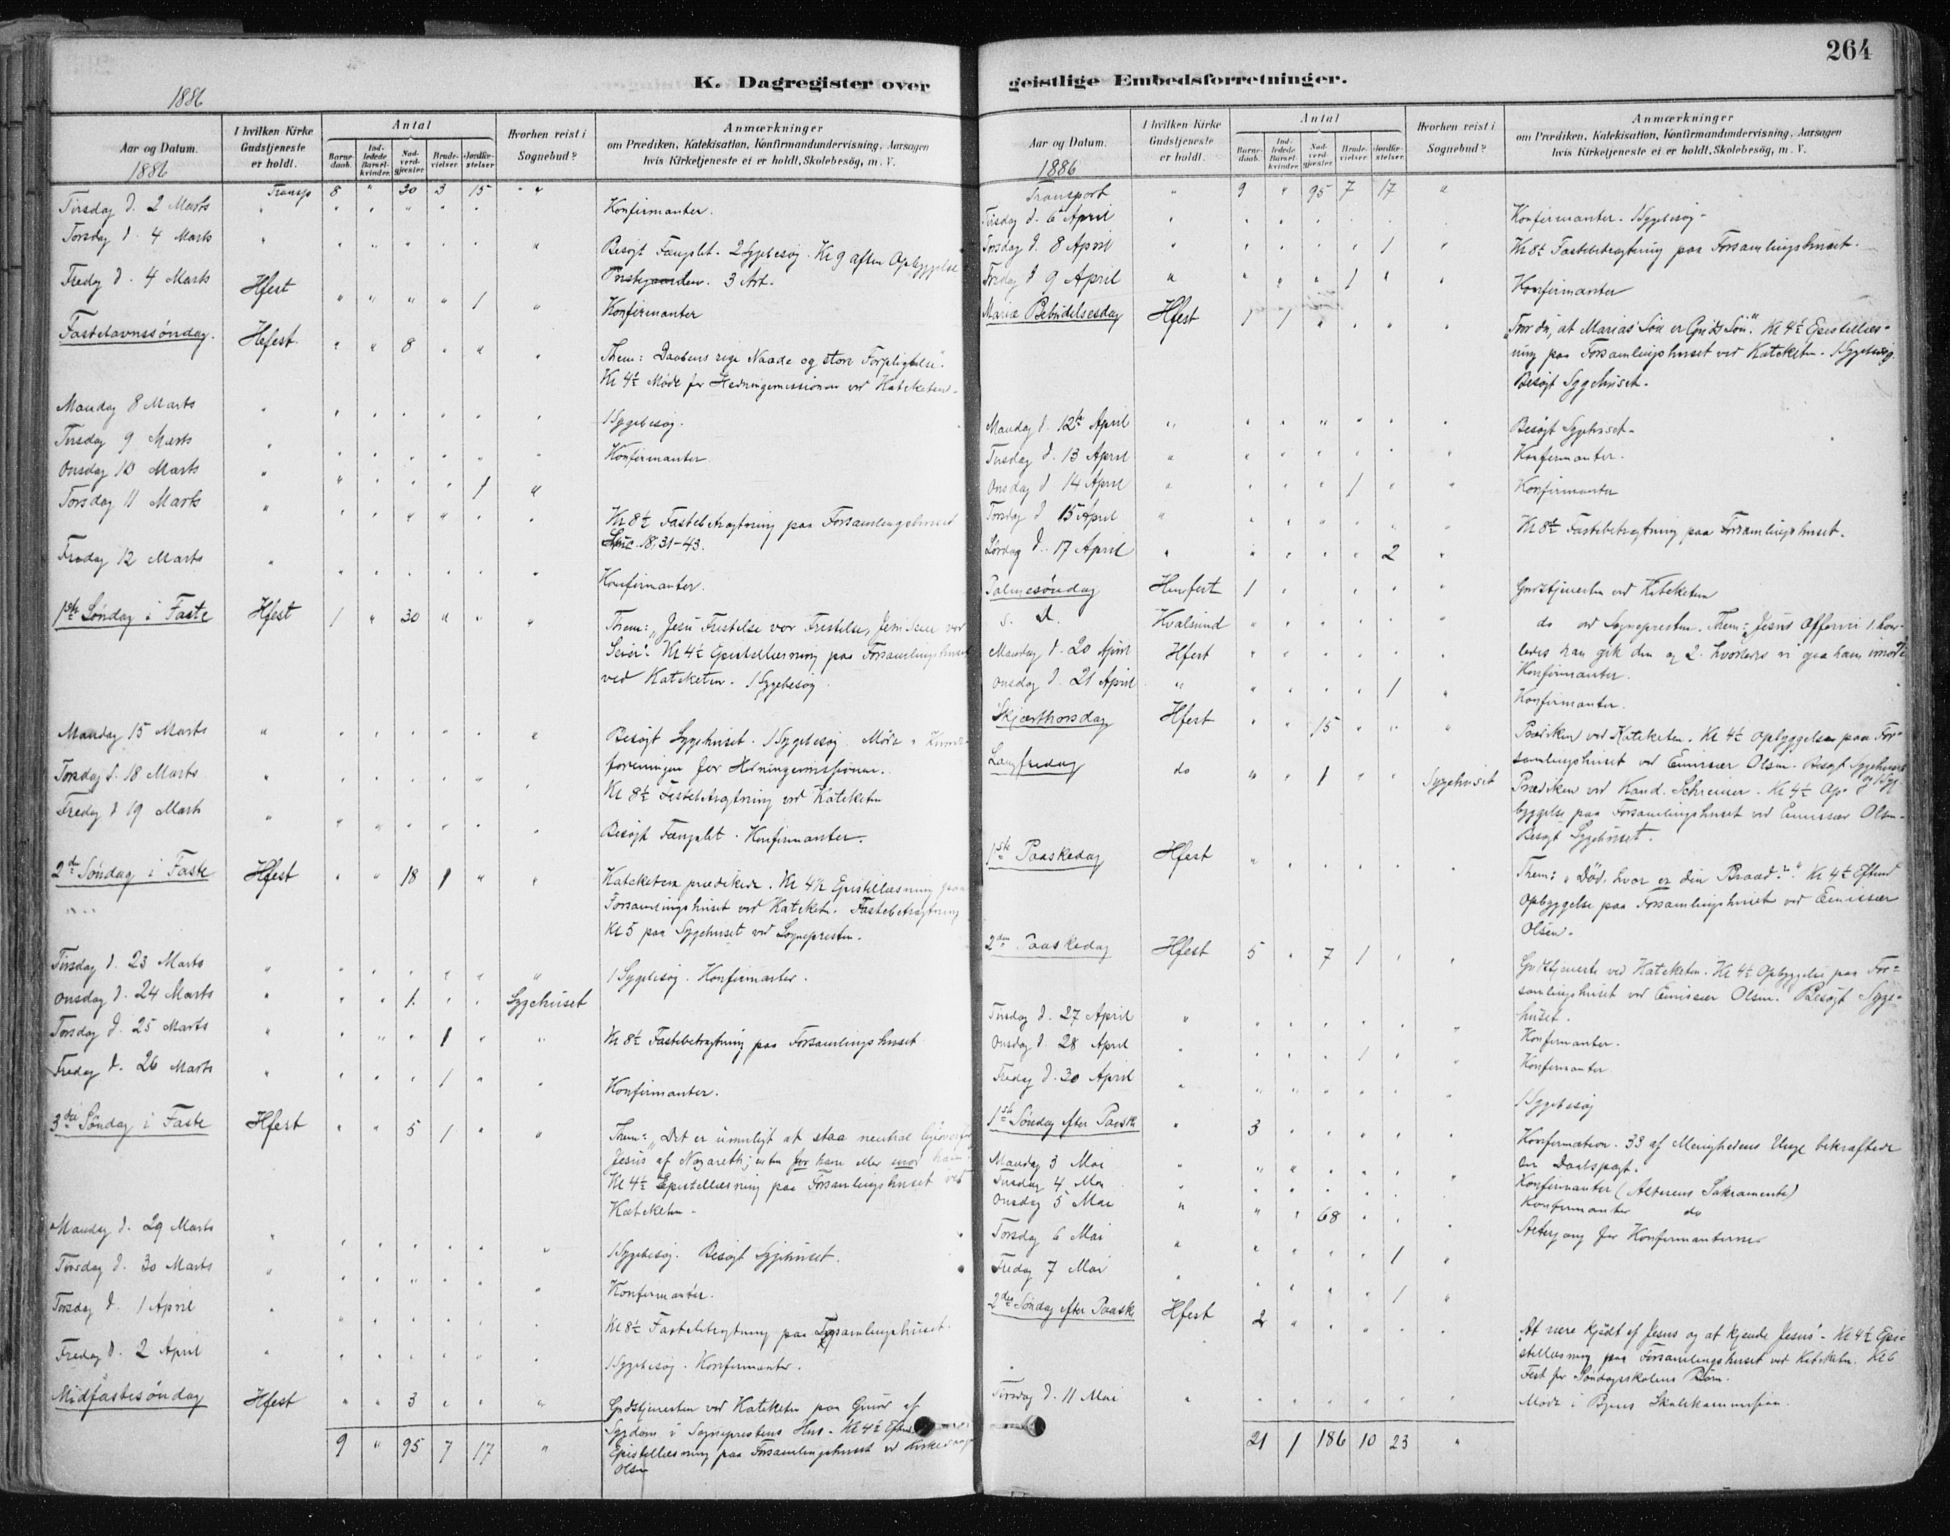 264
K. Dagregister over geistlige Embedsforretninger.
1886
Aar og Datum.
1886
I hvilken Kirke Gudstjeneste er holdt.
Antal
Barne-daab.
Ind-ledede Barsel-kvinder.
Nad-verd-gjæster.
Brude-vielser.
Jordfæ-stelser.
Hvorhen reist i Sognebud?
Anmærkninger
om Prædiken, Katekisation, Konfirmandundervisning, Aarsagen
hvis Kirketjeneste ei er holdt, Skolebesøg, m. V.
Transp 8 " 30 3 15 " "
Tirsdag d. 2 Marts Konfirmanter.
Torsdag d. 4 Marts Besøgt Fængslet. 2 Sygebesøg. Kl 9 aften Opbyggelse
Prestegaarden. 3 Art.
Fredag d. 4 Marts Hfest " " " " 1 " Konfirmanter
Fastelavnssøndag. Hfest. " " 8 " " " Them: Daabens rige Naade og store Forpligtelse".
Kl 4½ Møde for Hedningemissionen ved Kateketen.
Mandag 8 Marts 1 Sygebesøg.
Tirsdag 9 Marts Konfirmanter.
Onsdag 10 Marts 1 "
Torsdag 11 Marts Kl 8½ Fastebetragtning paa Forsamlingshuset
Luc 18, 31-43.
Fredag 12 Marts Konfirmanter.
1ste Søndag i Faste Hfest 1 " 30 " " " Them: "Jesu Fristelse vor Fristelse, Jesu Seier vor
Seier". Kl 4½ Epistellæsning paa Forsamlingshuset
ved Kateketen. 1 Sygebesøg.
Mandag 15 Marts Besøgt Sygehuset. 1 Sygebesøg. Møde i Kvinde-
foreningen for Hedningemissionen.
Torsdag d. 18 Marts Kl 8½ Fastebetragtning ved Kateketen
Fredag d 19 Marts Besøgt Fængslet. Konfirmanter.
2den Søndag i Faste Hfest " " 18 1 " " Kateketen prædikede. Kl 4½ Epistellæsning paa
Forsamlingshuset ved Kateketen. Fastebetragtning
Kl 5 paa Sygehuset ved Sognepresten.
Tirsdag d. 23 Marts 1 Sygebesøg. Konfirmanter.
Onsdag d. 24 Marts " " " 1. " " Sygehuset
Torsdag d. 25 Marts 1 Kl 8½ Fastebetragtning paa Forsamlingshuset
Fredag d. 26 Marts 1 Konfirmanter.
3die Søndag i Faste Hfest " " 5 1 " " Them: "Det er umuligt at staa neutral ligeoverfor
Jesus af Nazareth; enten for ham eller mod ham".
Kl 4½ Epistellæsning paa Forsamlingshuset ved
Kateketen.
Mandag d. 29 Marts 1 Sygebesøg. Besøgt Sygehuset.
Tirsdag d. 30 Marts Konfirmanter.
Torsdag d. 1 April Kl 8½ Fastebetragtning paa Forsamlingshuset.
Fredag d. 2 April 1 Sygebesøg. Konfirmanter.
Midfastesøndag Hfest " " 3 " " " Gudstjenesten ved Kateketen paa Grund af
Sygdom i Sogneprestens Hus. Kl 4½ Efterm
Epistellæsning paa Forsamlingshuset ved Kirkesanger
Olsen
9 " 95 7 17 "
Aar og Datum.
1886
I hvilken Kirke Gudstjeneste er holdt.
Antal
Barne-daab.
Ind-ledede Barsel-kvinder.
Nad-verd-gjæster.
Brude-vielser.
Jordfæ-stelser.
Hvorhen reist i Sognebud?
Anmærkninger
om Prædiken, Katekisation, Konfirmandundervisning, Aarsagen
hvis Kirketjeneste ei er holdt, Skolebesøg, m. V.
Transport " 9 " 95 7 17 "
Tirsdag d. 6 April Konfirmanter. 1 Sygebesøg.
Torsdag d. 8 April 1 Kl 8½ Fastebetragtning paa Forsamlingshuset.
Fredag d 9 April 1 Konfirmanter
Mariæ Bebudelsesdag Hfest 1 1 " " " " "Tror du, at Marias Søn er Guds Søn". Kl 4½ Epistellæs-
ning paa Forsamlingshuset ved Kateketen. 1 Sygebesøg.
Besøgt Sygehuset.
Mandag d. 12te April Besøgt Sygehuset.
Tirsdag d. 13 April Konfirmanter.
Onsdag d 14 April 1 Konfirmanter
Torsdag d 15 April Kl 8½ Fastebetragtning paa Forsamlingshuset.
Lørdag d. 17 April 2
Palmesøndag Hmfest 1 Gudstjenesten ved Kateketen
s. D. Kvalsund do ved Sognepresten. Them: "Jesus Offervei 1. hvor-
ledes han gik den og 2. hvorledes vi gaa ham imøde
Mandag d. 20 April Hfest Konfirmanter.
Onsdag d. 21 April " 1 Konfirmanter.
Skjærthorsdag Hfest " " 15 " " " Prædiken ved Kateketen. Kl 4½ Opbyggelse paa For-
samlingshuset ved Emissær Olsen. Besøgt Sygehuset
Langfredag do " " 1 " " Sygehuset Prædiken ved Kand. Schreiner. Kl 4½ Op-
byggelse paa Forsamlingshuset ved Emissær Olsen.
Besøgt Sygehuset.
1ste Paaskedag Hfest Them: "Død, hvor er din Braad?" Kl 4½ Efterm
Opbyggelse paa Forsamlingshuset ved Emissær
Olsen.
2den Paaskedag Hfest 5 " 7 1 " " Gudstjeneste ved Kateketen. Kl 4½ Opbyggelse paa For-
samlingshuset ved Emissær Olsen. Besøgt Syge-
huset.
Tirsdag d. 27 April Konfirmanter.
Onsdag d. 28 April 1 Konfirmanter
Fredag d. 30 April 1 Sygebesøg
1ste Søndag efter Paaske " 3 Konfirmation. 33 af Menighedens Unge bekræftede
sin Daabspagt.
Mandag 3 Mai Konfirmanter (Alterens Sakramente)
Tirsdag 4 Mai Konfirmanter do
Onsdag 5 Mai " " " 68 Altergang for Konfirmanterne
Torsdag 6 Mai 1
Fredag 7 Mai 1
2den Søndag efter Paaske Hfest 2 At være kjendt af Jesus og at kjende Jesus". Kl 4½ Epi-
stellæsning paa Forsamlingshuset ved Kateketen. Kl 6
Fest for Søndagsskolens Børn.
Tirsdag d. 11 Mai Møde i Byens Skolekommission.
21 1 186 10 23 "